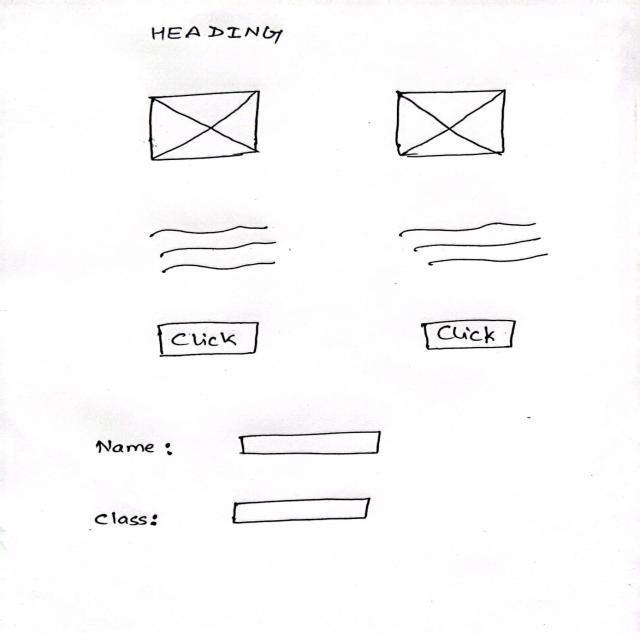 HEADING
Click
Click
Name:
Class: